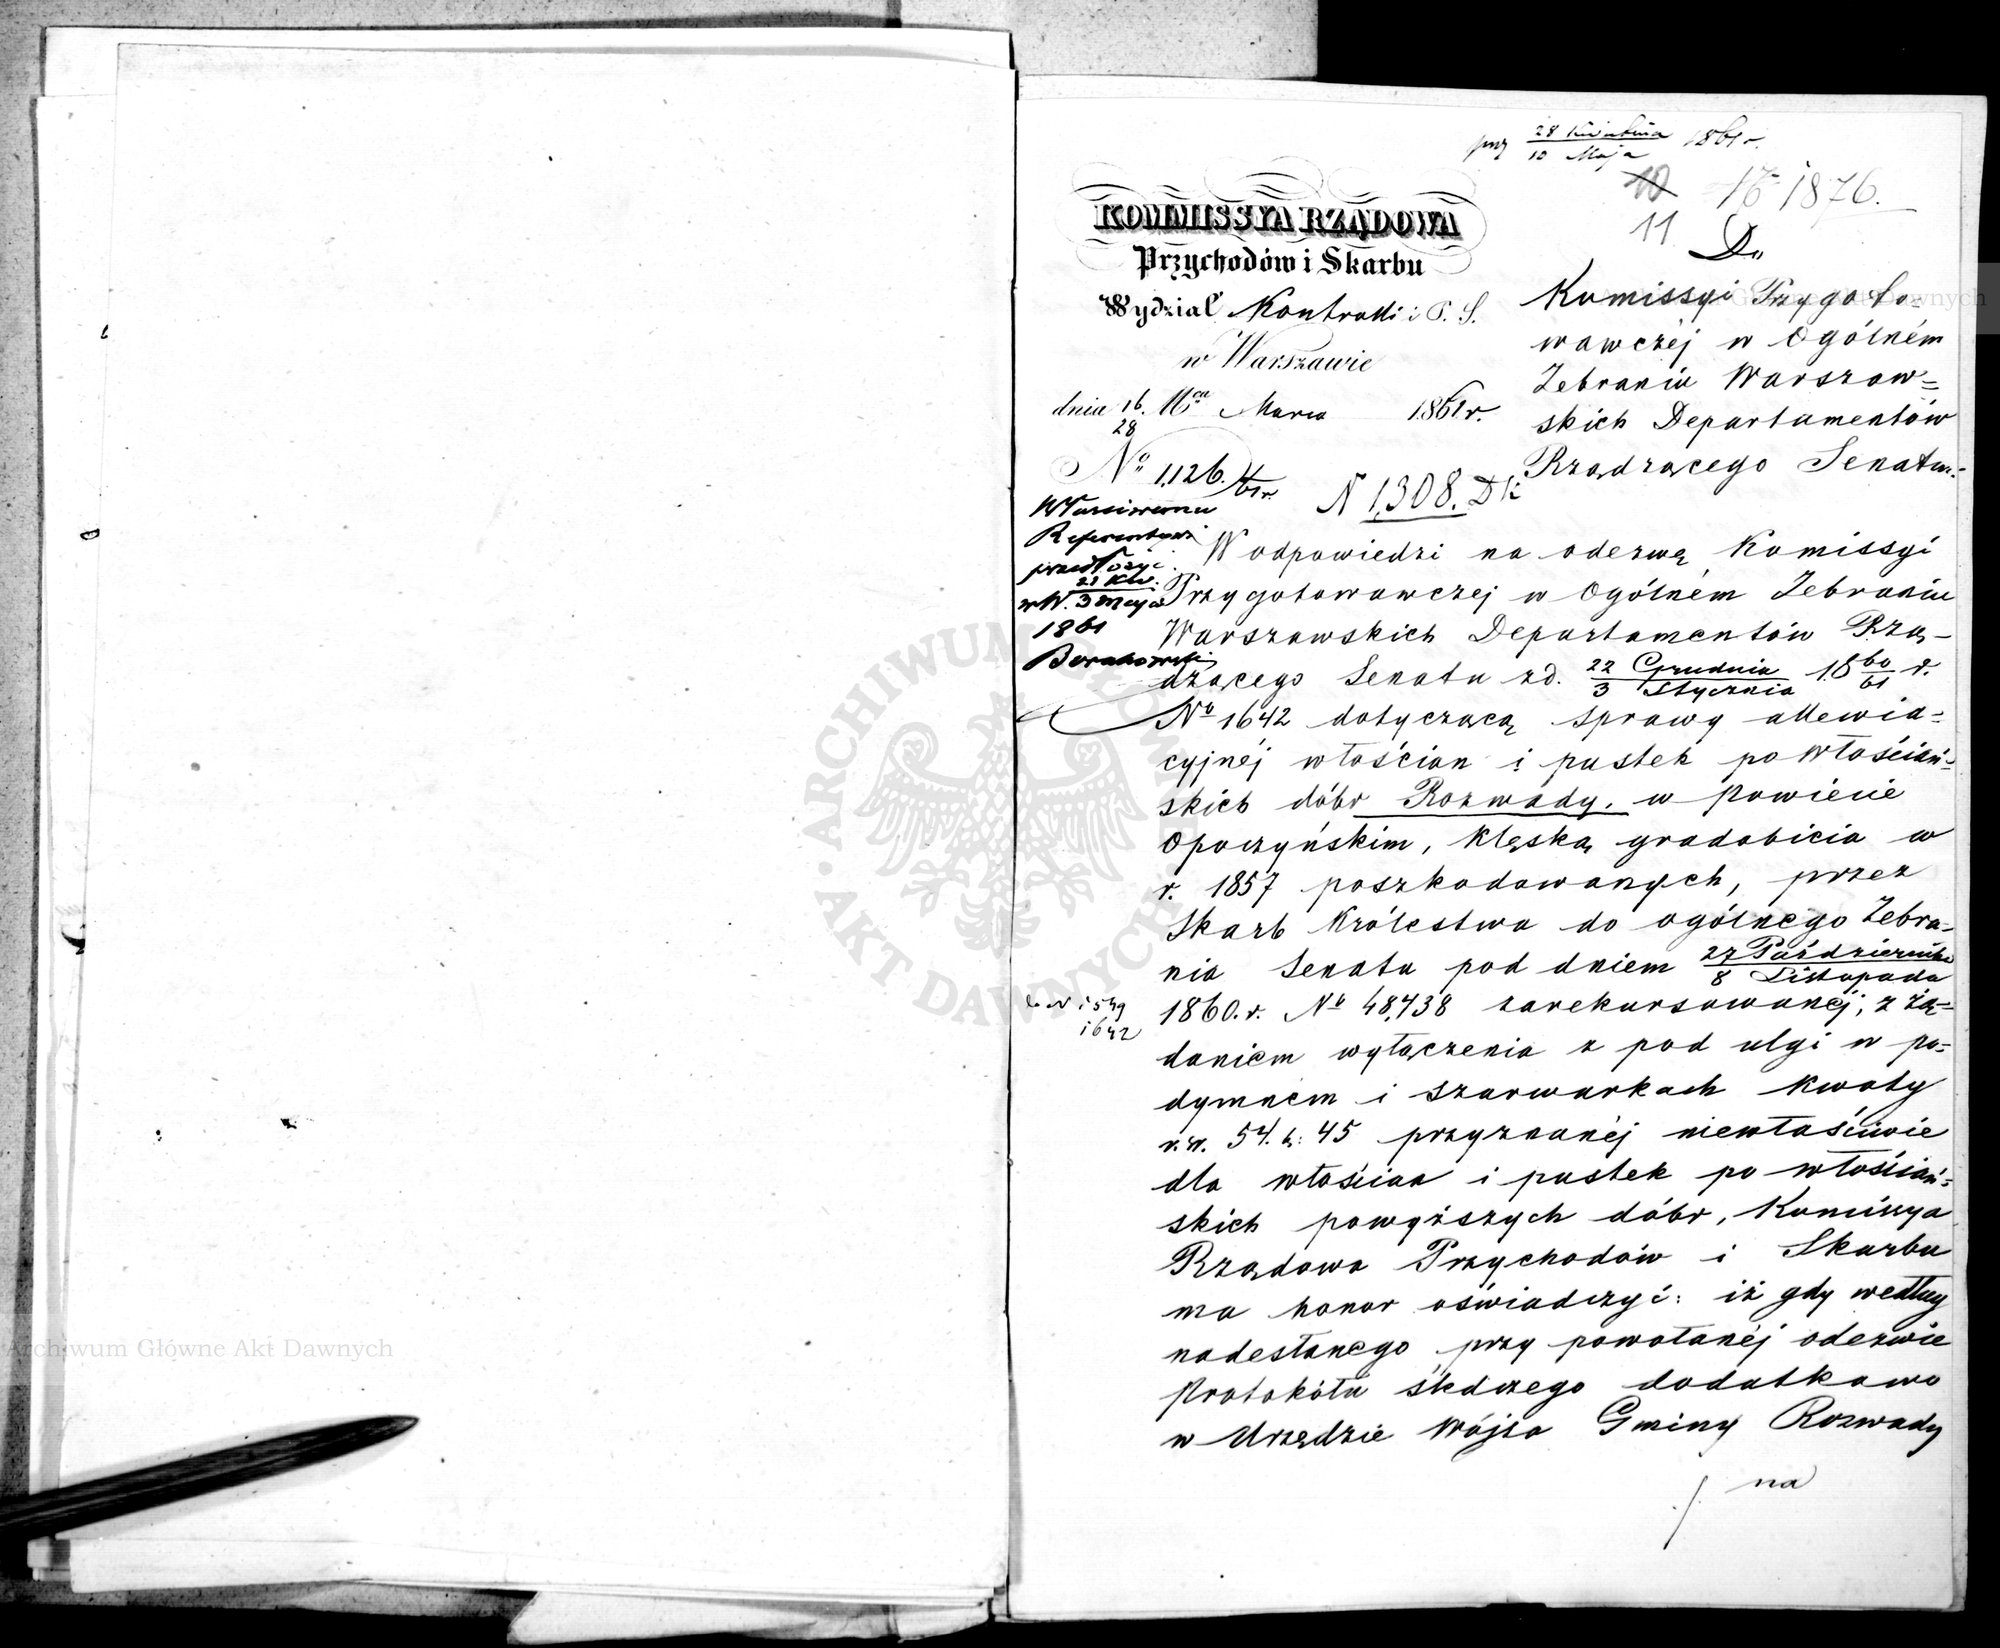 28 Kwietnia
10 Maja 1861 r.
10 1876.
11
KOMMISSYA RZĄDOWA
Przychodów i Skarbu
Wydział Kontrolli i P. S.
w Warszawie
dnia 16/28 Mca Marca 1861 r.
No 1,126./61 r.
N 1,308.
Do
Komissyi Przygoto-
wawczéj w Ogólném
Zebraniu Warszaw=
skich Departamentów
Rządzącego Senatu.-
Właściwemu
Referentowi
przedłożyć.
21 Kw.
w W. 3 Maja
1861
W odpowiedzi na odezwę Komissyi
Przygotowawczej w Ogólném Zebraniu
Warszawskich Departamentów Rzą-
dzącego Senatu z d. 22 Grudnia / 3 Stycznia 1860/61 r.
No 1642 dotyczącą sprawy allewia=
cyjnéj włościan i pustek po włościań=
skich dóbr Rozwady. w Powiecie
Opoczyńskim, klęską gradobicia w
r. 1857 poszkodowanych, przez
Skarb Królestwa do ogólnego Zebra-
nia Senatu pod dniem 27 Października / 8 Listopada
do N 1549
1642
1860. r. No 48,438 zarekursowanéj, z żą=
daniem wyłączenia z pod ulgi w po=
dymném i szarwarkach kwoty
r. s. 54. k: 45 przyznanéj niewłaściwie
dla włościan i pustek po włościań=
skich powyższych dóbr, Komissya
Rządowa Przychodów i Skarbu
ma honor oświadczyć: iż gdy według
nadesłanego przy powołanéj odezwie
Protokółu śledczego dodatkowo
w Urzędzie Wójta Gminy Rozwady
/. na
Archiwum Główne Akt Dawnych
Archiwum Główne Akt Dawnych
ARCHIWUM GŁÓWNE AKT DAWNYCH · AKT DAWNYCH